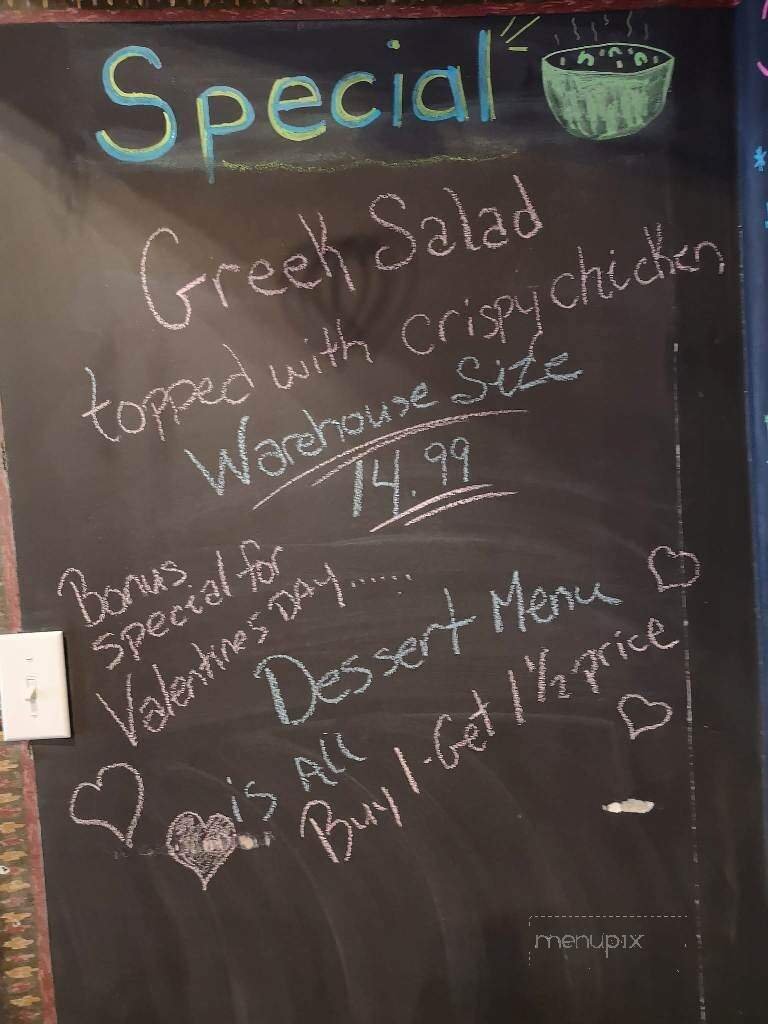 Special
Greek Salad
topped with crispy chicken
Warehouse Size
14.99
Bonus
special for
Valentines DAY......
Dessert Menu
is All
Buy 1-Get 1 1/2-price
menupix